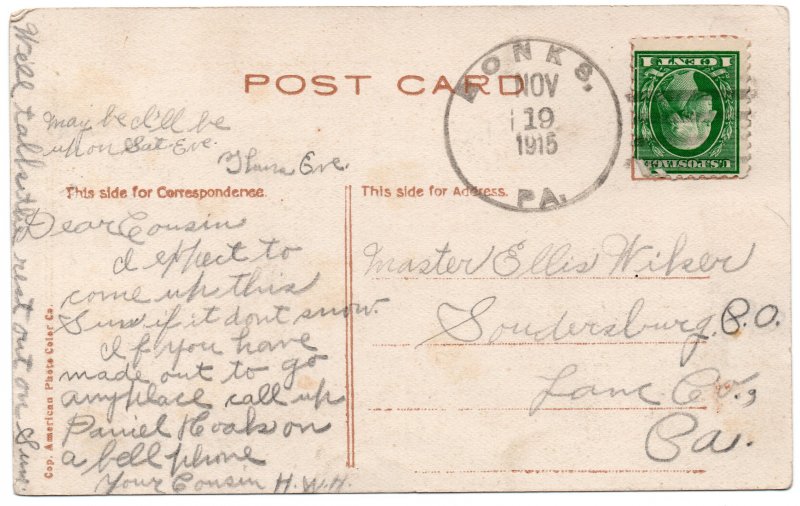 POST CARD
RONKS,
NOV
19
1915
PA.
1 CENT 1
U.S. POSTAGE
may be I'll be
up on Sat. Eve.
Thurs Eve.
This side for Correspondence.
Dear Cousin
I expect to
come up this
Sun if it dont snow.
If you have
made out to go
anyplace call up
Daniel Hoak on
a bell phone
Your Cousin H.W.H.
We'll talk the rest out on Sun.
Cop. American Photo Color Co.
This side for Address.
Master Ellis
Soudersburg P.O.
Lanc Co.,
Pa.